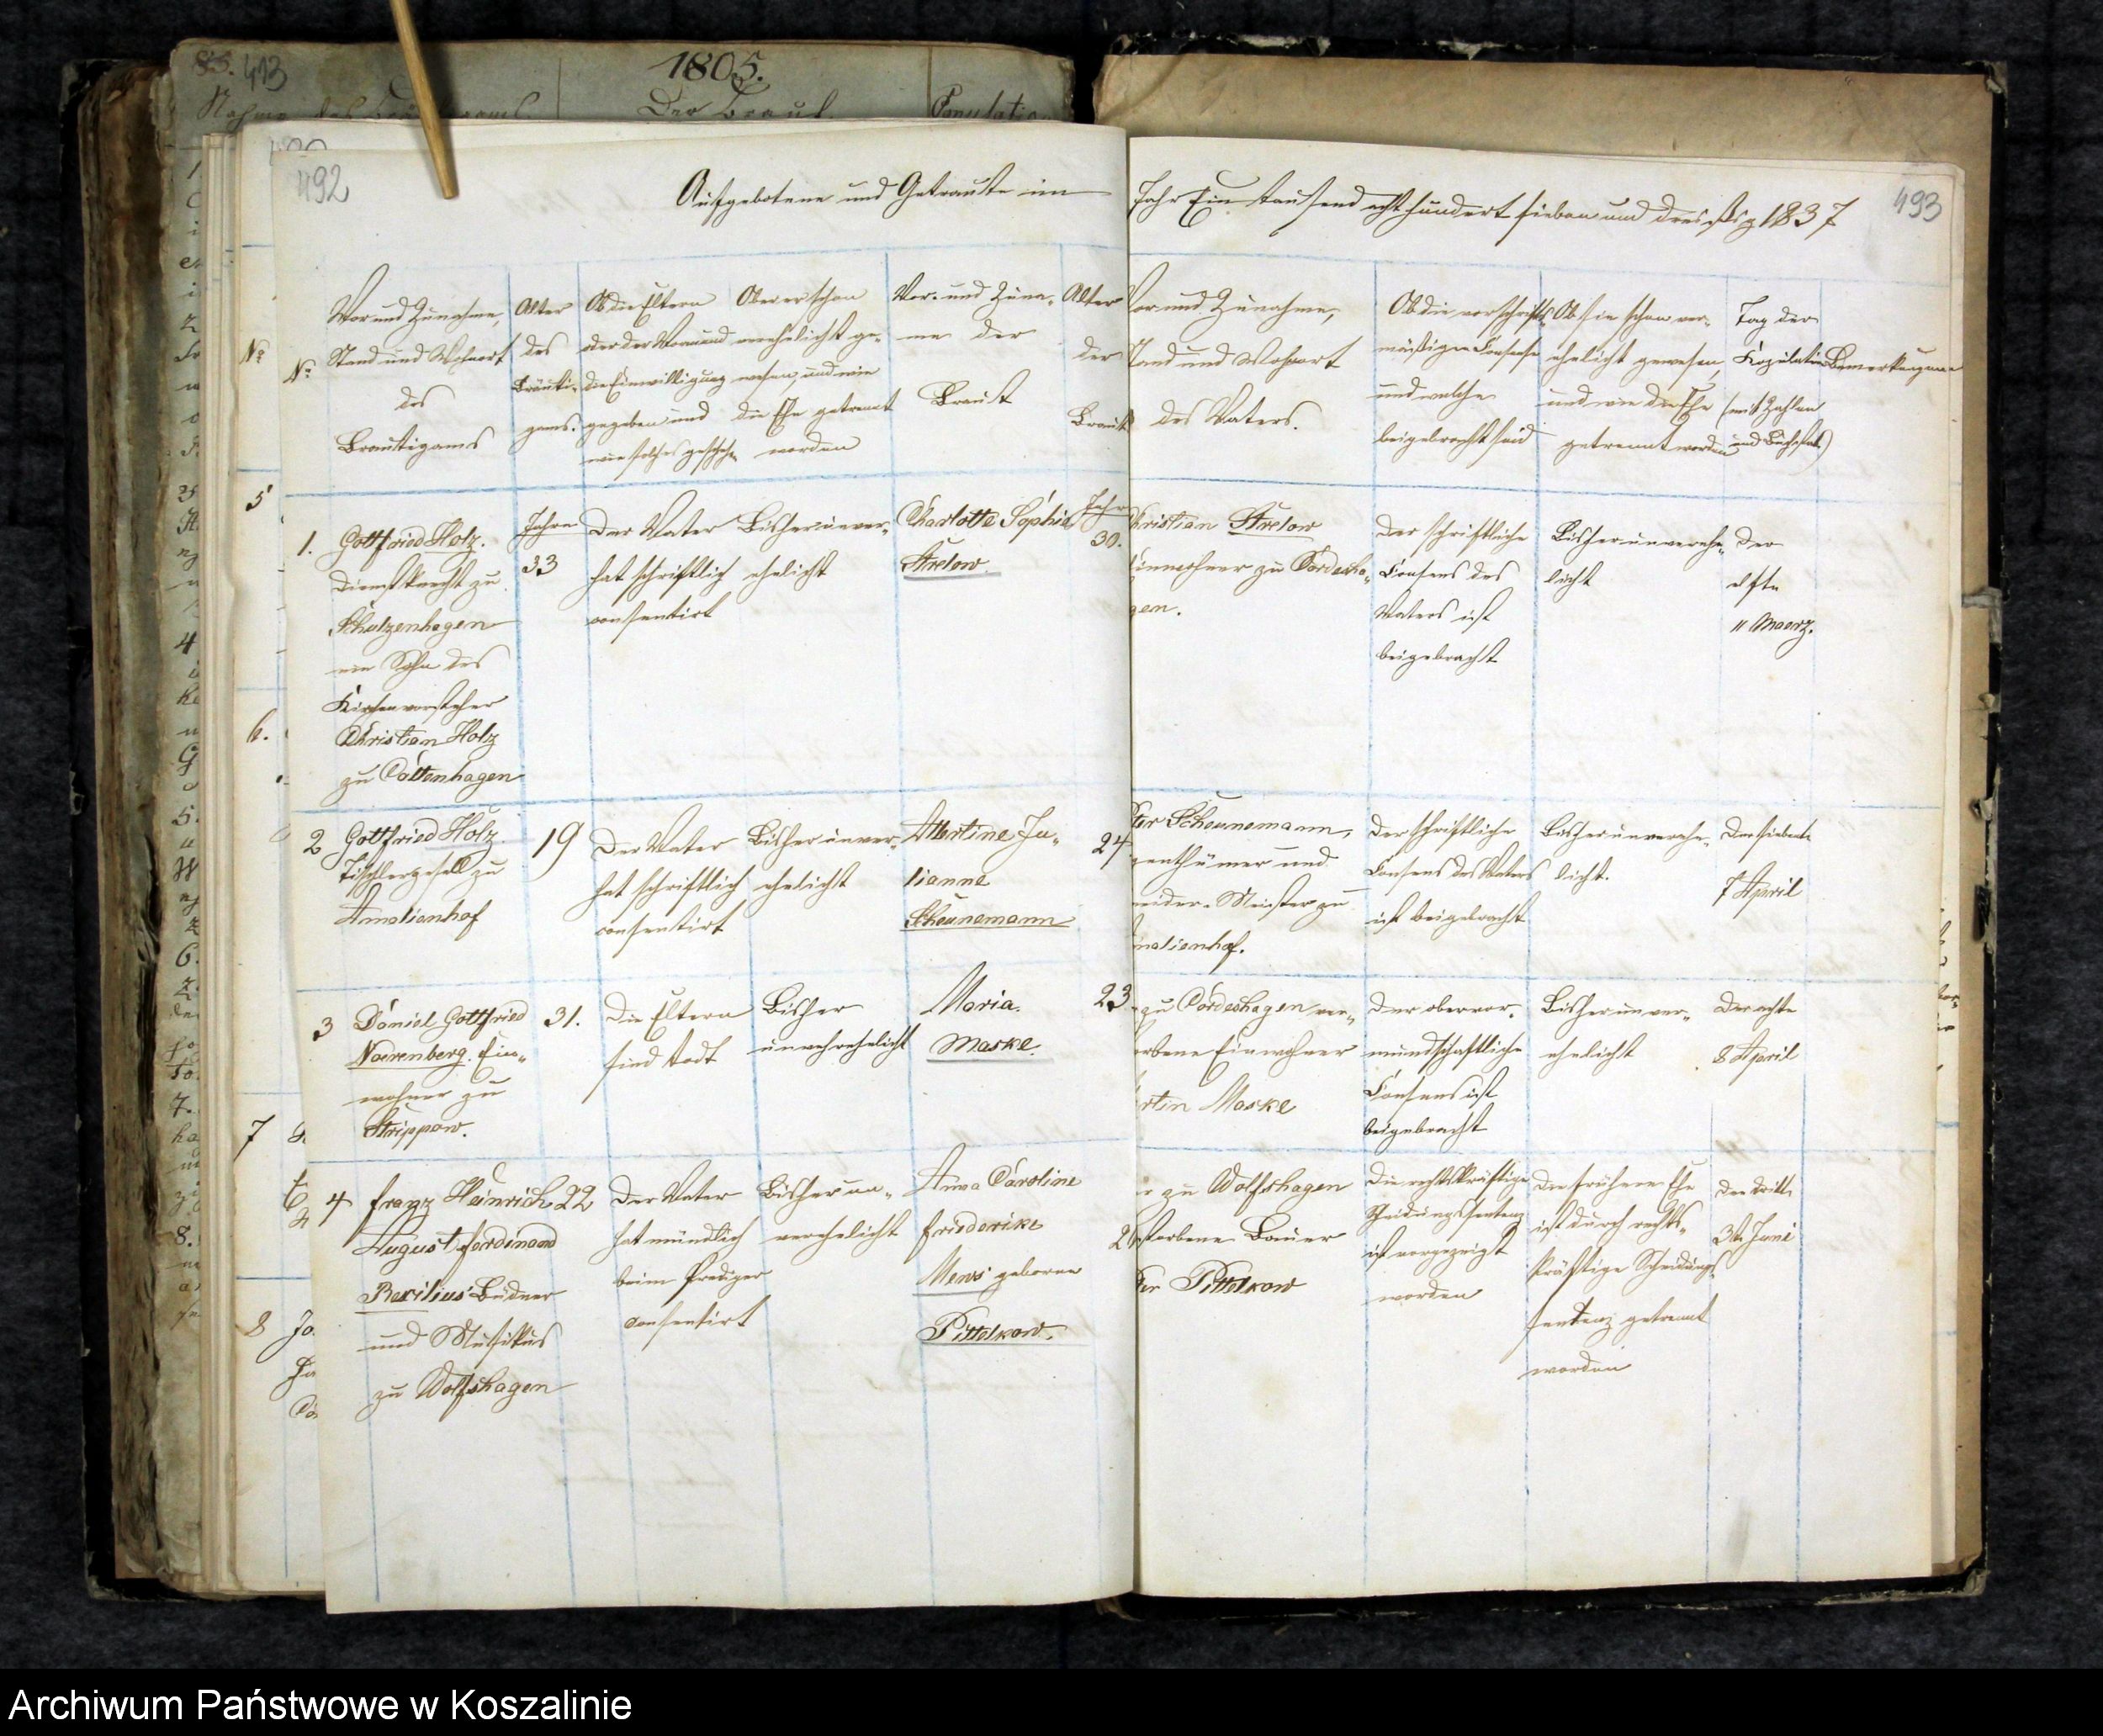 83. 413
1805.
Der Braut.
492
Aufgebotene und Getraute im
Jahr Ein tausend acht hundert sieben und dreißig 1837
493
No
No
Vor und Zunahme,
Stand und Wohnort
des
Bräutigams
Alter
des
Bräuti-
gams.
Ob die Eltern
oder der Vormund
die Einwilligung
gegeben und
wie solches geschehn
Ob er er schon
verehelicht ge-
wesen, und wie
die Ehe getrennt
worden
Vor- und Zuna-
me der
Braut
Alter
der
Braut
Vor und Zunahme,
Stand und Wohnort
des Vaters.
Ob die vorschrifts
mäßigen Consense
und welche
beigebracht sind
Ob sie schon ver-
ehelicht gewesen,
und wie die Ehe
getrennt worden
Tag der
Kopulation
(mit Zahlen
und Buchstab.)
Bemerkungen
5
1.
Gottfried Holz.
Dienstknecht zu
Schulzenhagen
ein Sohn des
Kirchenvorsteher
Christian Holz
zu Baltenhagen
Jahre
33
Der Vater
hat schriftlich
consentirt
Bisher unver-
ehelicht
Charlotte Sophia
Strelow.
Jahr
30.
Christian Strelow
Einwohner zu Cordesha-
gen.
Der schriftliche
Consens des
Vaters ist
beigebracht
Bisher unverehe-
licht
Der
elfte
11 Maerz.
6.
2
Gottfried Holz.
Tischlergesell zu
Amalienhof
19
Der Vater
hat schriftlich
consentirt
Bisher unver-
ehelicht
Albertine Ju-
lianne
Scheunemann
24
ter Scheunemann,
genthümer und
neider-Meister zu
malienhof.
Der schriftliche
Consens des Vaters
ist beigebracht
Bisher unverehe-
licht.
Der siebente
7 April
3
Daniel Gottfried
Noerenberg. Ein-
wohner zu
Strippow.
31.
Die Eltern
sind todt
Bisher
unverehelicht
Maria.
Maske.
23
zu Cordeshagen ver-
orbene Einwohner
rtin Maske
Der obervor-
mundschaftliche
Consens ist
beigebracht
Bisher unver-
ehelicht
Der achte
8 April
7
4
Franz Heinrich
August Ferdinand
Rexilius Büdner
und Musikus
zu Wolfshagen
22
Der Vater
hat mündlich
beim Prediger
consentirt
Bisher un-
verehelicht
Anna Caroline
Friederike
Mews geborne
Pittelkow.
26
r zu Wolfshagen
storbene Bauer
ter Pittelkow
Die rechtskräftige
Scheidungs Sentenz
ist vorgezeigt
worden
Die frühere Ehe
ist durch rechts-
kräftige Scheidungs
sentenz getrennt
worden
Der dritte
3t. Juni
8
Archiwum Państwowe w Koszalinie